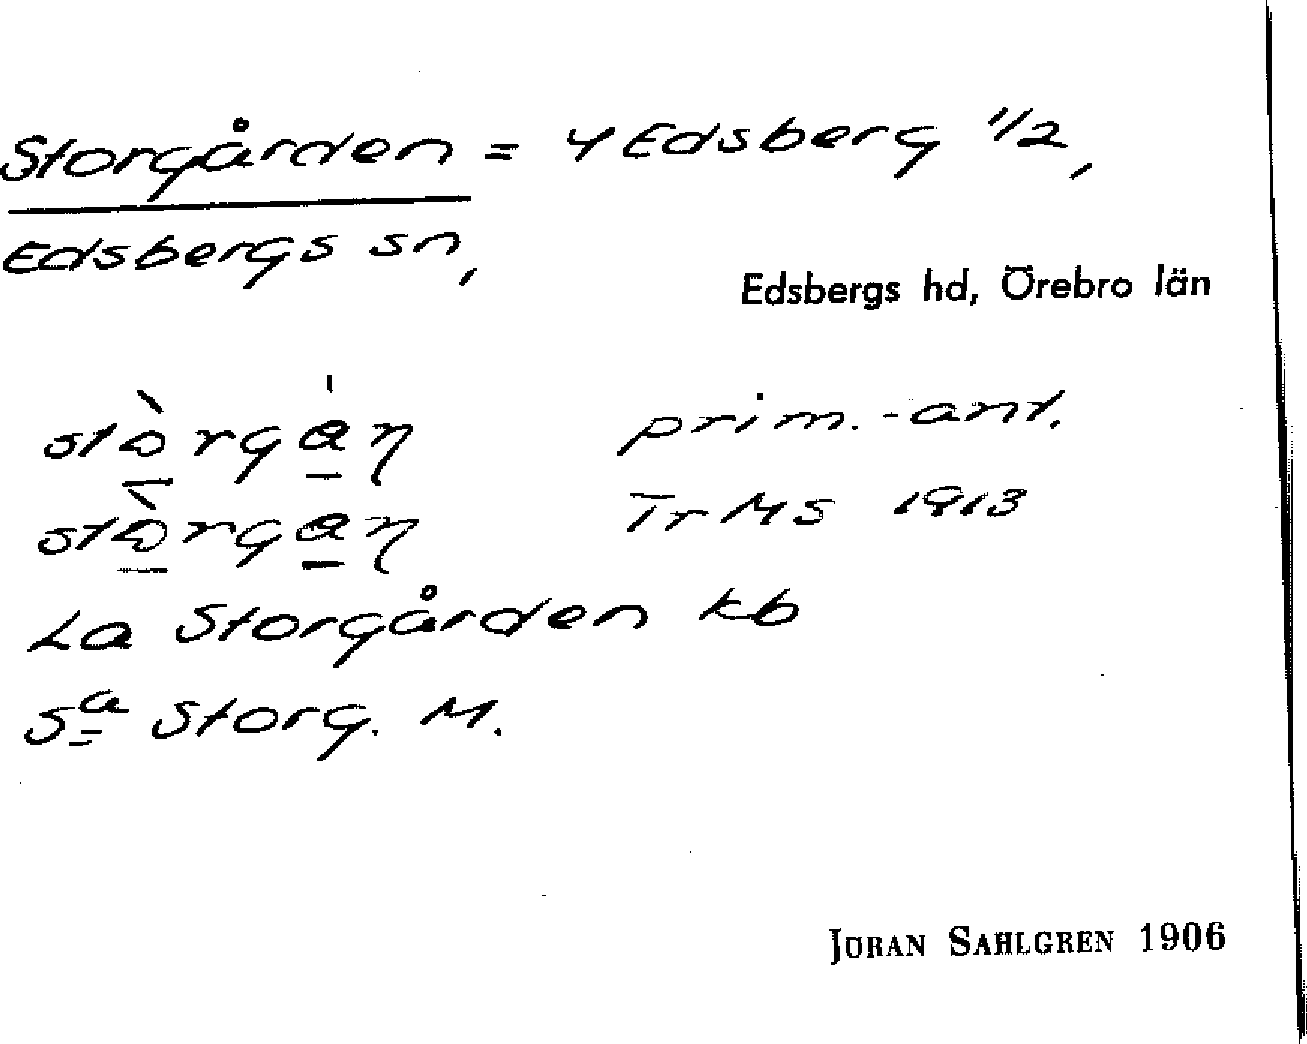 Storgården = Y Edsberg 1/2,
Edsbergs sn,
Edsbergs hd, Örebro län
prim.-ant.
TrMS 1913
La Storgården kb
Sa Storg. M.
JÖRAN SAHLGREN 1906